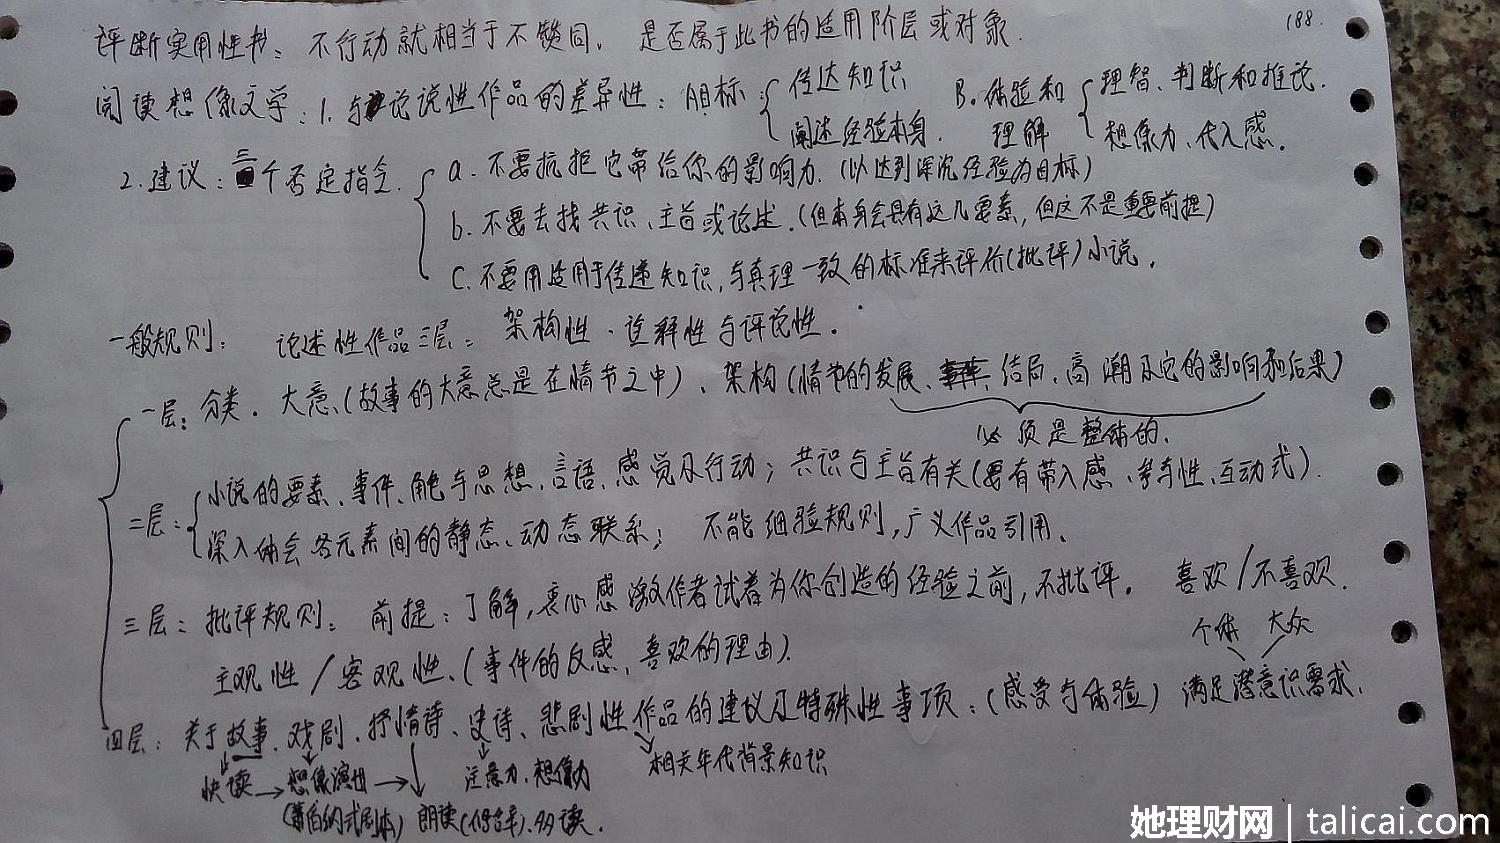 188.
评断实用性书：不行动就相当于不赞同。是否属于此书的适用阶层或对象.
阅读想像文学：1.与论说性作品的差异性：A目标：{传达知识 B.体验和理解{理智、判断和推论.
阐述经验本身. 想像力、代入感。
2.建议：三个否定指令.{a.不要抗拒它带给你的影响力.(以达到深沉经验为目标)
b.不要去找共识、主旨或论述.(但本身会具有这几要素,但这不是重要前提)
C.不要用适用于传递知识,与真理一致的标准来评价(批评)小说。
一般规则： 论述性作品三层：架构性·诠释性与评论性.
一层：分类.大意(故事的大意总是在情节之中)、架构(情节的发展、结局、高潮及它的影响和后果)
必须是整体的.
二层：{小说的要素、事件、角色与思想、言语、感觉及行动；共识与主旨有关(要有带入感、参与性、互动式).
深入体会各元素间的静态、动态联系； 不能细验规则,广义作品引用、
三层：批评规则： 前提：了解,衷心感激作者试着为你创造的经验之前,不批评。 喜欢/不喜欢.
个体 大众
主观性/客观性.(事件的反感、喜欢的理由).
满足潜意识需求.
四层：关于故事、戏剧、抒情诗、史诗、悲剧性作品的建议及特殊性事项：(感受与体验)
快读→想像演出→ 注意力、想像力 相关年代背景知识
朗读 多读.
她理财网 | talicai.com